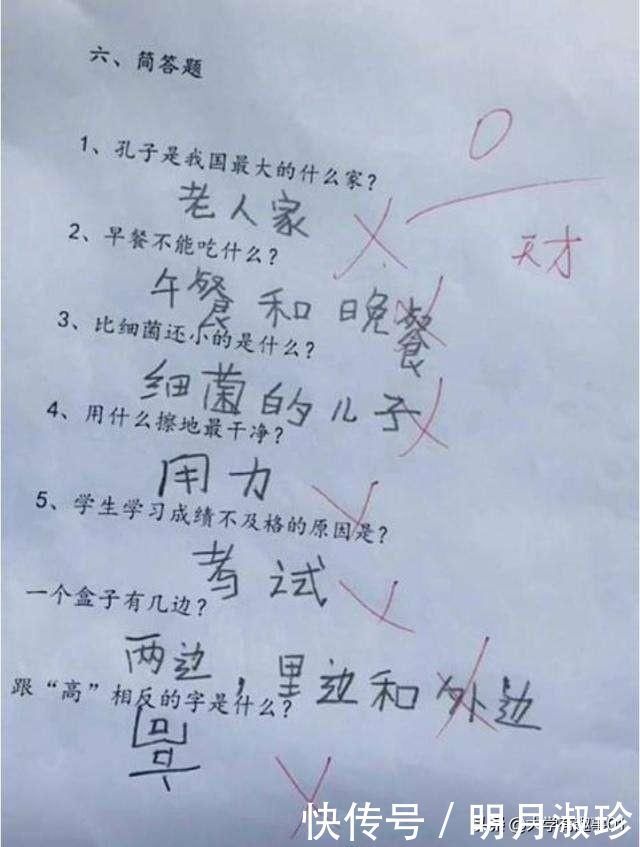 六、简答题
0
天才
1、孔子是我国最大的什么家？
老人家
2、早餐不能吃什么？
午餐和晚餐
3、比细菌还小的是什么？
细菌的儿子
4、用什么擦地最干净？
用力
5、学生学习成绩不及格的原因是？
考试
一个盒子有几边？
两边，里边和外边
跟“高”相反的字是什么？
快传号／明月淑珍